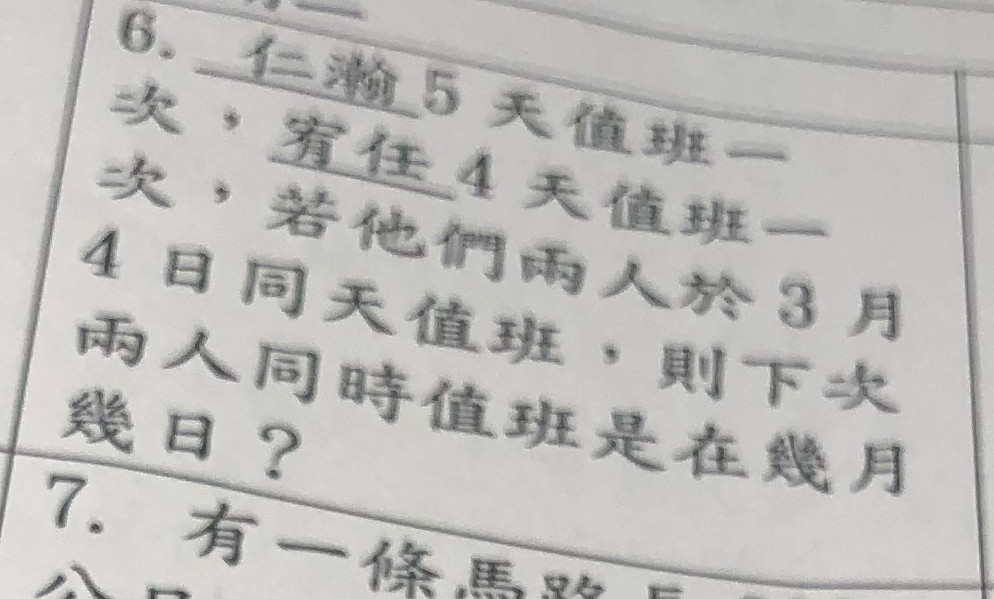 6. 仁瀚 5 天值班一
次，宥任 4 天值班一
次，若他們兩人於 3 月
4 日同天值班，則下次
兩人同時值班是在幾月
幾日？
7. 有一條馬路